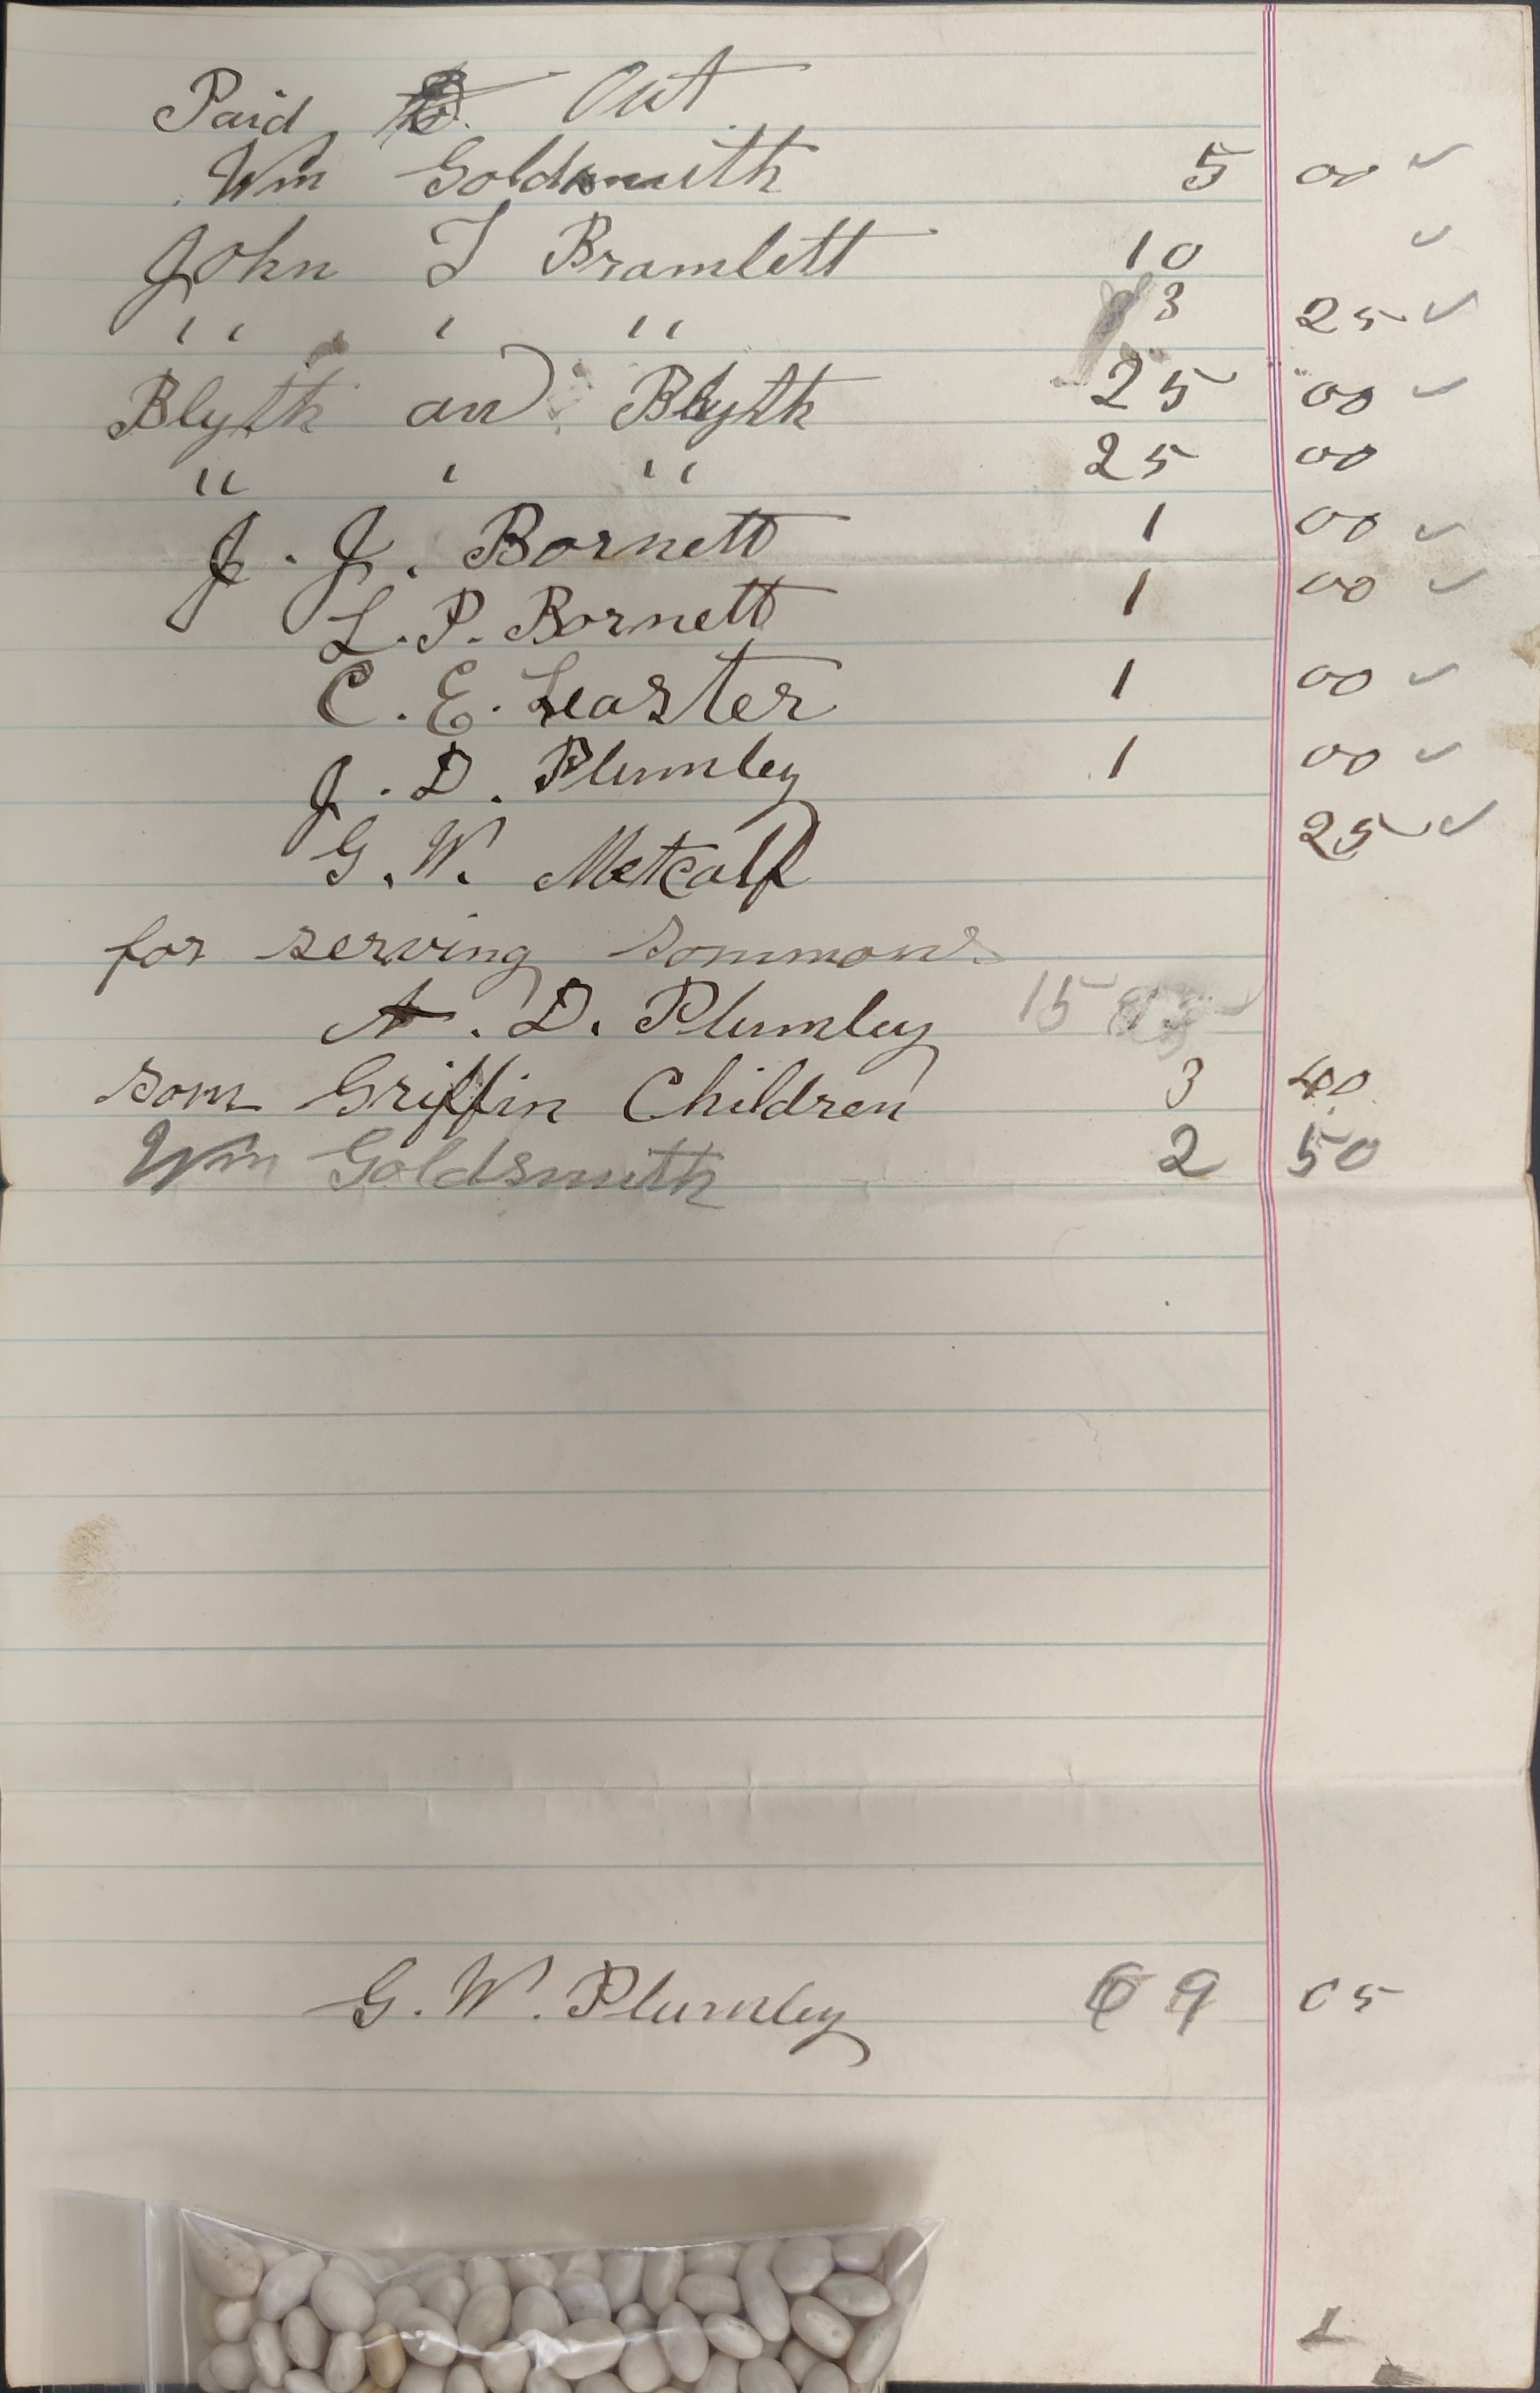 Paid Out
Wm Goldsmith 5 00 ✓
John T Bramlett 10 ✓
" ' " 3 25 ✓
Blyth and Blyth 25 00 ✓
" ' " 25 00
J. J. Bornett 1 00 ✓
L. P. Bornett 1 00 ✓
C. E. Leaster 1 00 ✓
J. D. Plumley 1 00 ✓
G. W. Metcalf 25 ✓
for serving sommons
A. D. Plumley 15
som Griffin Children 3 40
Wm Goldsmith 2 50
G. W. Plumley 69 05